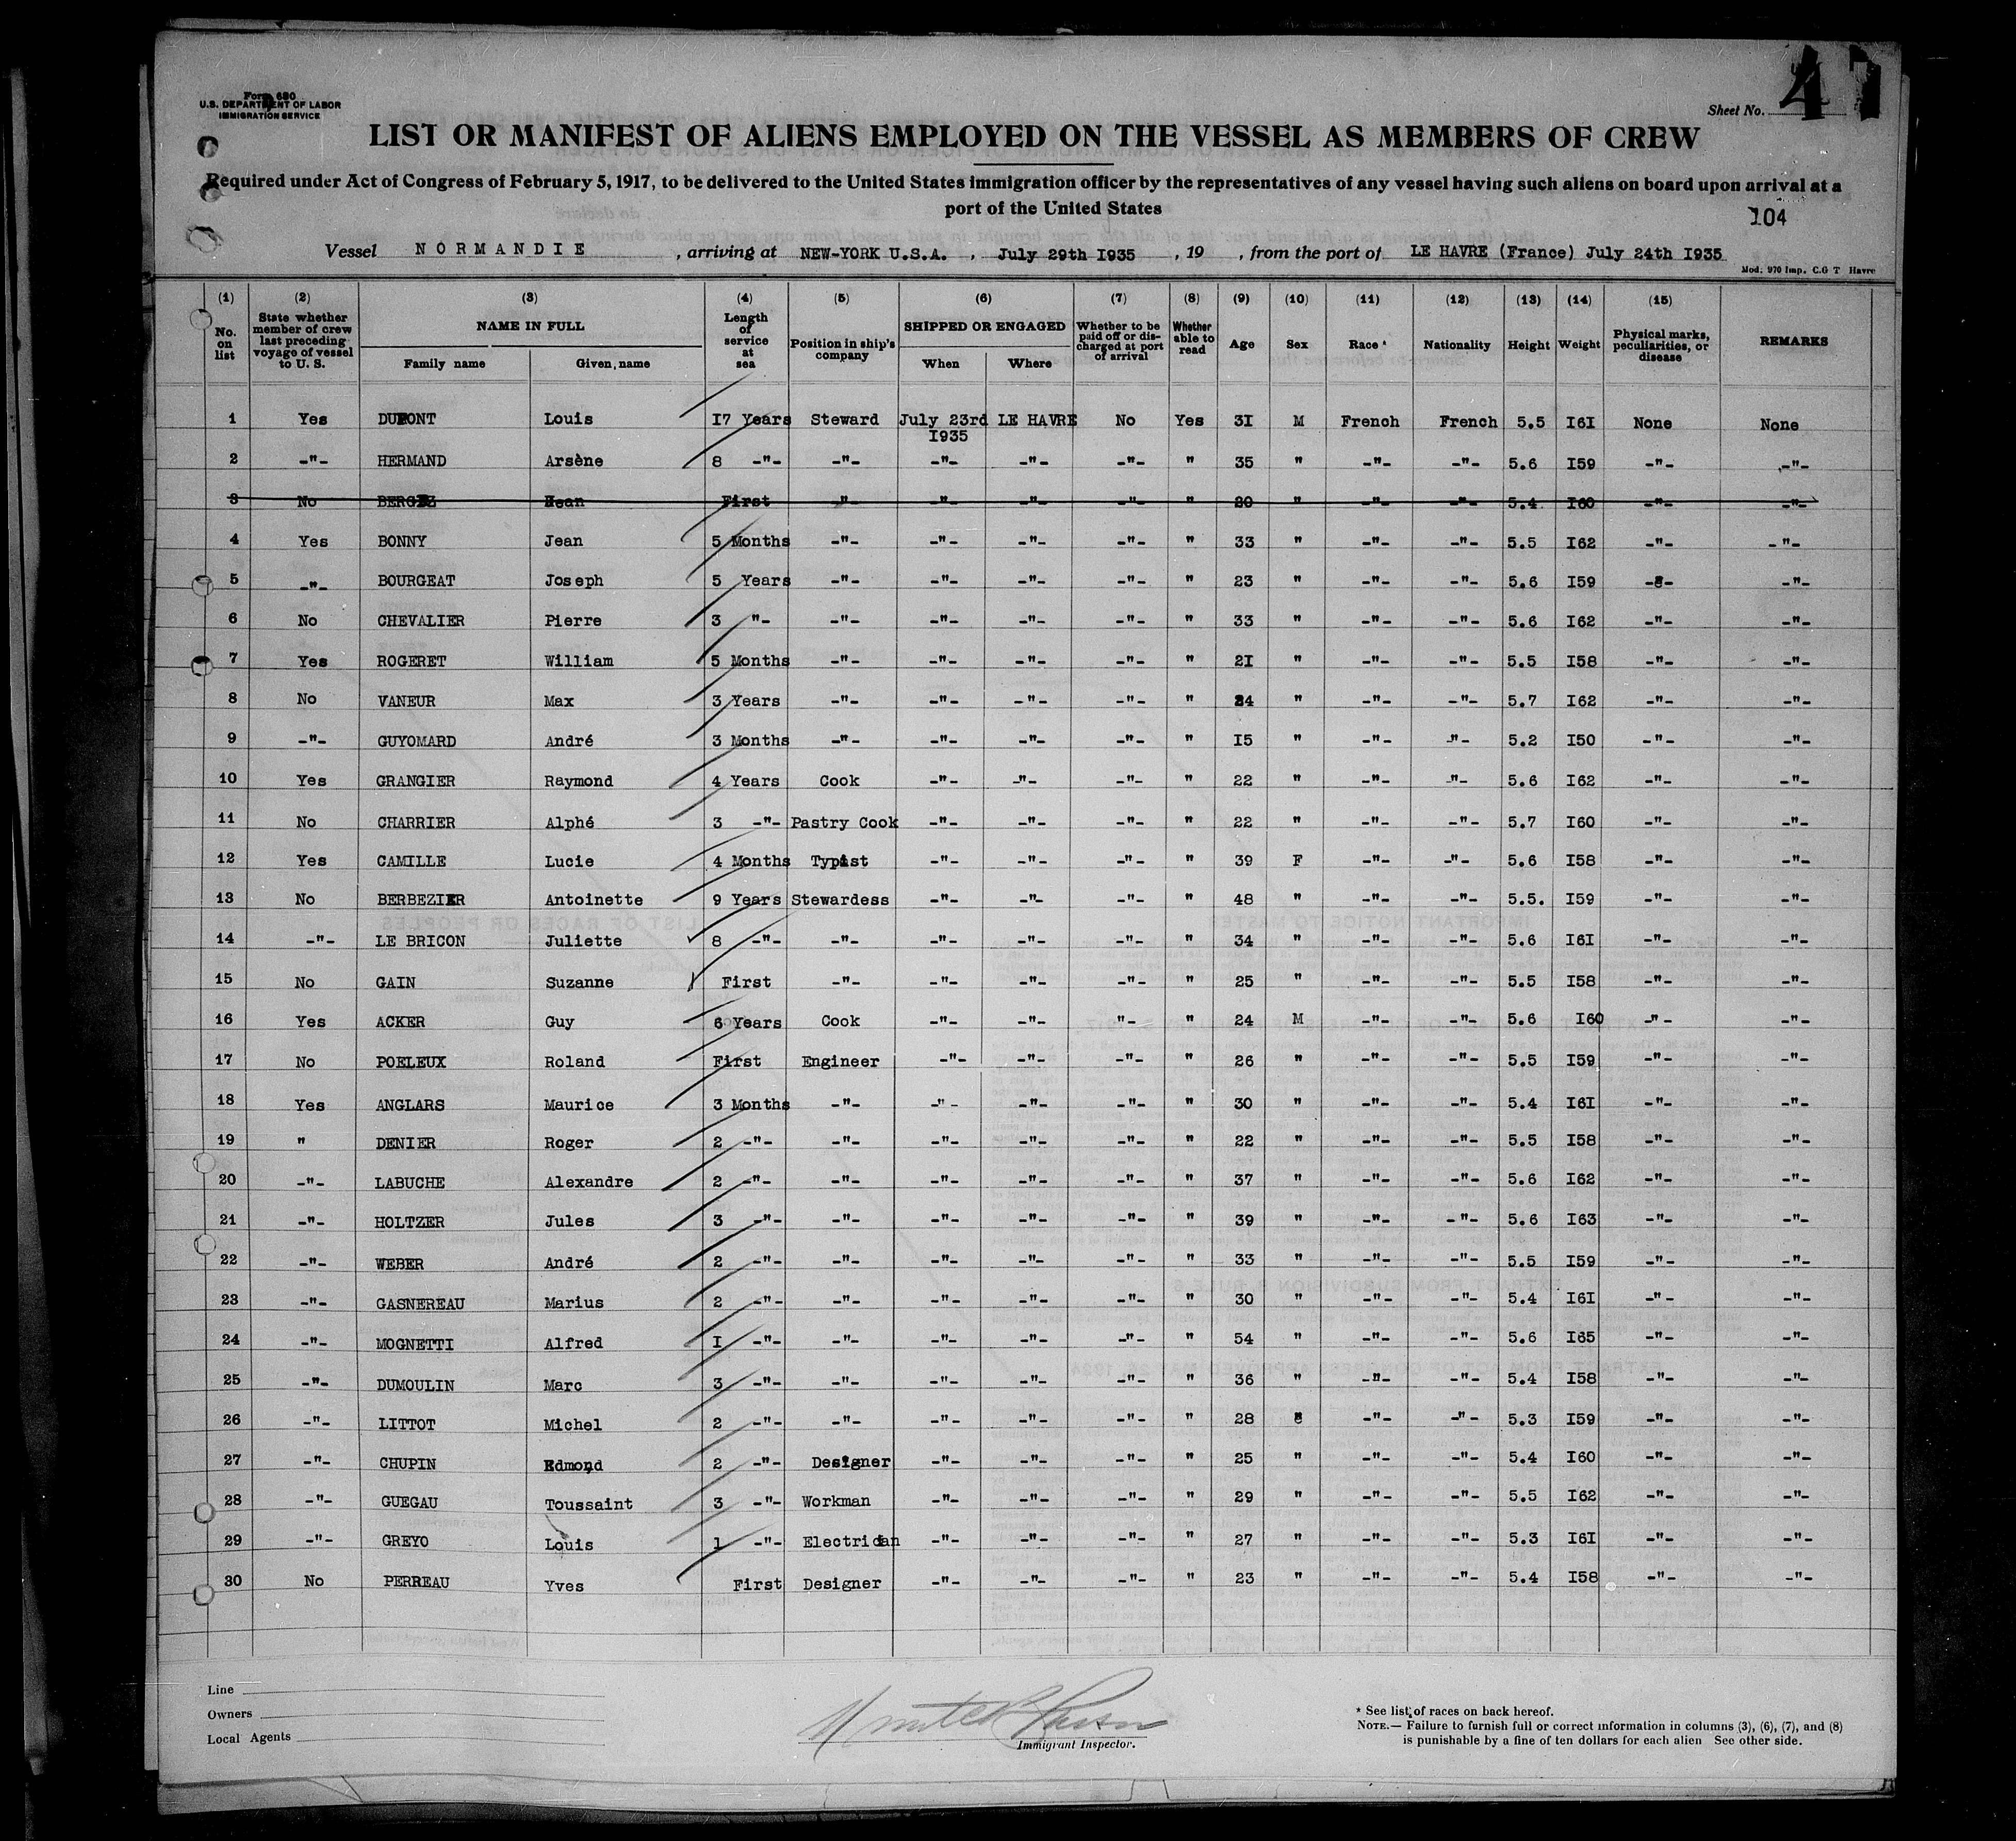 Form 680
U.S. DEPARTMENT OF LABOR
IMMIGRATION SERVICE
Sheet No. 47
LIST OR MANIFEST OF ALIENS EMPLOYED ON THE VESSEL AS MEMBERS OF CREW
Required under Act of Congress of February 5, 1917, to be delivered to the United States immigration officer by the representatives of any vessel having such aliens on board upon arrival at a
port of the United States
104
Vessel NORMANDIE, arriving at NEW-YORK U.S.A., July 29th 1935, 19 , from the port of LE HAVRE (France) July 24th 1935
Mod: 970 Imp. C.G T Havre
(1) (2) (3) (4) (5) (6) (7) (8) (9) (10) (11) (12) (13) (14) (15)
No. on list State whether member of crew last preceding voyage of vessel to U. S. NAME IN FULL Length of service at sea Position in ship's company SHIPPED OR ENGAGED Whether to be paid off or discharged at port of arrival Whether able to read Age Sex Race * Nationality Height Weight Physical marks, peculiarities, or disease REMARKS
Family name Given name When Where
1 Yes DUPONT Louis 17 Years Steward July 23rd 1935 LE HAVRE No Yes 31 M French French 5.5 161 None None
2 -"- HERMAND Arsène 8 -"- -"- -"- -"- -"- " 35 " -"- -"- 5.6 159 -"- -"-
3 No BERGEZ Jean First -"- -"- -"- -"- " 20 " -"- -"- 5.4 160 -"- -"-
4 Yes BONNY Jean 5 Months -"- -"- -"- -"- " 33 " -"- -"- 5.5 162 -"- -"-
5 -"- BOURGEAT Joseph 5 Years -"- -"- -"- -"- " 23 " -"- -"- 5.6 159 -"- -"-
6 No CHEVALIER Pierre 3 "- -"- -"- -"- -"- " 33 " -"- -"- 5.6 162 -"- -"-
7 Yes ROGERET William 5 Months -"- -"- -"- -"- " 21 " -"- -"- 5.5 158 -"- -"-
8 No VANEUR Max 3 Years -"- -"- -"- -"- " 24 " -"- -"- 5.7 162 -"- -"-
9 -"- GUYOMARD André 3 Months -"- -"- -"- -"- " 15 " -"- -"- 5.2 150 -"- -"-
10 Yes GRANGIER Raymond 4 Years Cook -"- -"- -"- " 22 " -"- -"- 5.6 162 -"- -"-
11 No CHARRIER Alphé 3 -"- Pastry Cook -"- -"- -"- " 22 " -"- -"- 5.7 160 -"- -"-
12 Yes CAMILLE Lucie 4 Months Typist -"- -"- -"- " 39 F -"- -"- 5.6 158 -"- -"-
13 No BERBEZIER Antoinette 9 Years Stewardess -"- -"- -"- " 48 " -"- -"- 5.5. 159 -"- -"-
14 -"- LE BRICON Juliette 8 -"- -"- -"- -"- -"- " 34 " -"- -"- 5.6 161 -"- -"-
15 No GAIN Suzanne First -"- -"- -"- -"- " 25 " -"- -"- 5.5 158 -"- -"-
16 Yes ACKER Guy 6 Years Cook -"- -"- "- " 24 M -"- -"- 5.6 160 -"- -"-
17 No POELEUX Roland First Engineer -"- -"- -"- " 26 " -"- -"- 5.5 159 -"- -"-
18 Yes ANGLARS Maurice 3 Months -"- -"- -"- -"- " 30 " -"- -"- 5.4 161 -"- -"-
19 " DENIER Roger 2 -"- -"- -"- -"- -"- " 22 " -"- -"- 5.5 158 -"- -"-
20 -"- LABUCHE Alexandre 2 -"- -"- -"- -"- -"- " 37 " -"- -"- 5.6 162 -"- -"-
21 -"- HOLTZER Jules 3 -"- -"- -"- -"- -"- " 39 " -"- -"- 5.6 163 -"- -"-
22 -"- WEBER André 2 -"- -"- -"- -"- -"- " 33 " -"- -"- 5.5 159 -"- -"-
23 -"- GASNEREAU Marius 2 -"- -"- -"- -"- -"- " 30 " -"- -"- 5.4 161 -"- -"-
24 -"- MOGNETTI Alfred 1 -"- -"- -"- -"- -"- " 54 " -"- -"- 5.6 165 -"- -"-
25 -"- DUMOULIN Marc 3 -"- -"- -"- -"- -"- " 36 " -"- -"- 5.4 158 -"- -"-
26 -"- LITTOT Michel 2 -"- -"- -"- -"- -"- " 28 " -"- -"- 5.3 159 -"- -"-
27 -"- CHUPIN Edmond 2 -"- Designer -"- -"- -"- " 25 " -"- -"- 5.4 160 -"- -"-
28 -"- GUEGAU Toussaint 3 -"- Workman -"- -"- -"- " 29 " -"- -"- 5.5 162 -"- -"-
29 -"- GREYO Louis 1 -"- Electrician -"- -"- -"- " 27 " -"- -"- 5.3 161 -"- -"-
30 No PERREAU Yves First Designer -"- -"- -"- " 23 " -"- -"- 5.4 158 -"- -"-
Line
Owners
Local Agents
Immigrant Inspector.
* See list of races on back hereof.
NOTE.— Failure to furnish full or correct information in columns (3), (6), (7), and (8)
is punishable by a fine of ten dollars for each alien See other side.